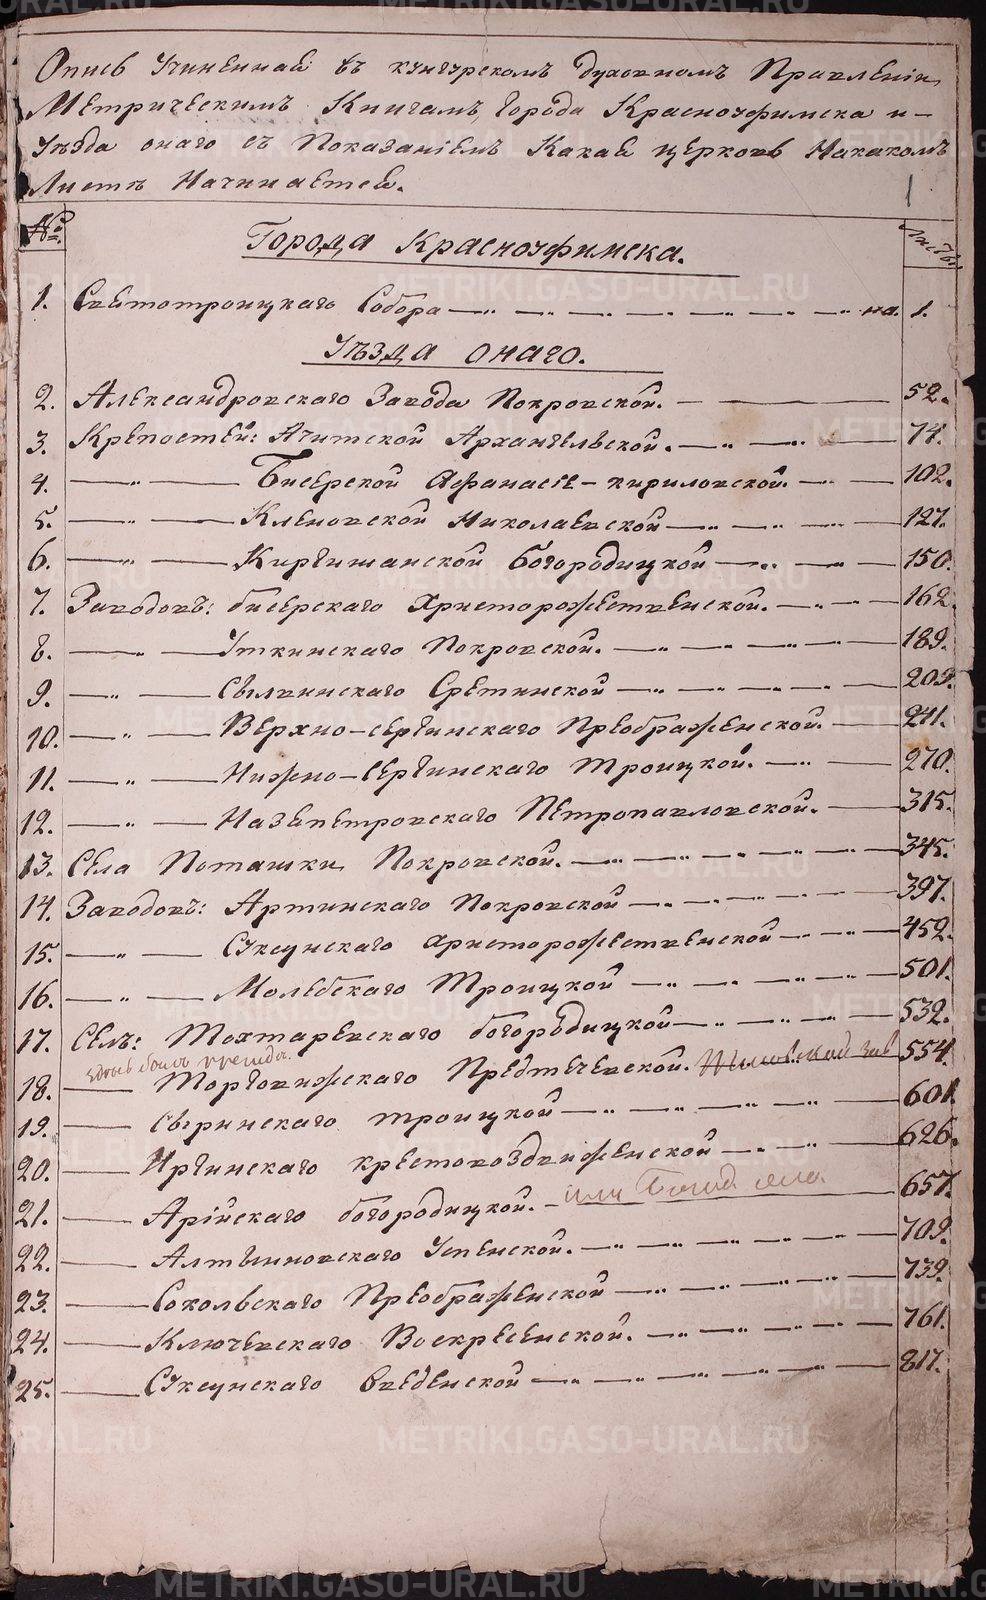 Опись Учиненная въ кунгурскомъ духовномъ Правленіи
Метрическимъ Книгамъ, Города Красноуфимска и
Уѣзда онаго съ Показаніемъ Какая церковь Накакомъ
Листѣ Начинается.
1
№ Листы
Города Красноуфимска.
1. Святотроицкаго Собора — на. 1.
Уѣзда онаго.
2. Александровскаго Завода Покровской. — 52.
3. Крепостей: Ачитской Архангельской. — 74.
4. — Бисерской Афанасіе-кириловской. — 102.
5. — Кленовской Николаевской — 127.
6. — Киргишанской Богородицкой — 150.
7. Заводовъ: бисерскаго Христорожественской. — 162.
8. — Уткинскаго Покровской. — 189.
9. — Сылвинскаго Сретинской — 209.
10. — Верхно-сергинскаго Преображенской. — 241.
11. — Нижно-сергинскаго Троицкой. — 270.
12. — Назепетровскаго Петропавловской. — 315.
13. Села Поташки Покровской. — 345.
14. Заводовъ: Артинскаго Покровской — 397.
15. — Суксунскаго Христорожественской — 452.
16. — Мольебскаго Троицкой — 501.
17. Селъ: Тохтаревскаго богородицкой — 532.
18. — Торговижскаго Предтечевской. 554.
19. — Сыринскаго троицкой — 601.
20. — Иргинскаго крестовоздвиженской — 626.
21. — Арійскаго богородицкой. — или 657.
22. — Алтынновскаго Успенской. — 709.
23. — Сокольскаго Преображенской — 739.
24. — Ключевскаго Воскресенской. — 761.
25. — Суксунскаго введенской — 817.
METRIKI.GASO-URAL.RU